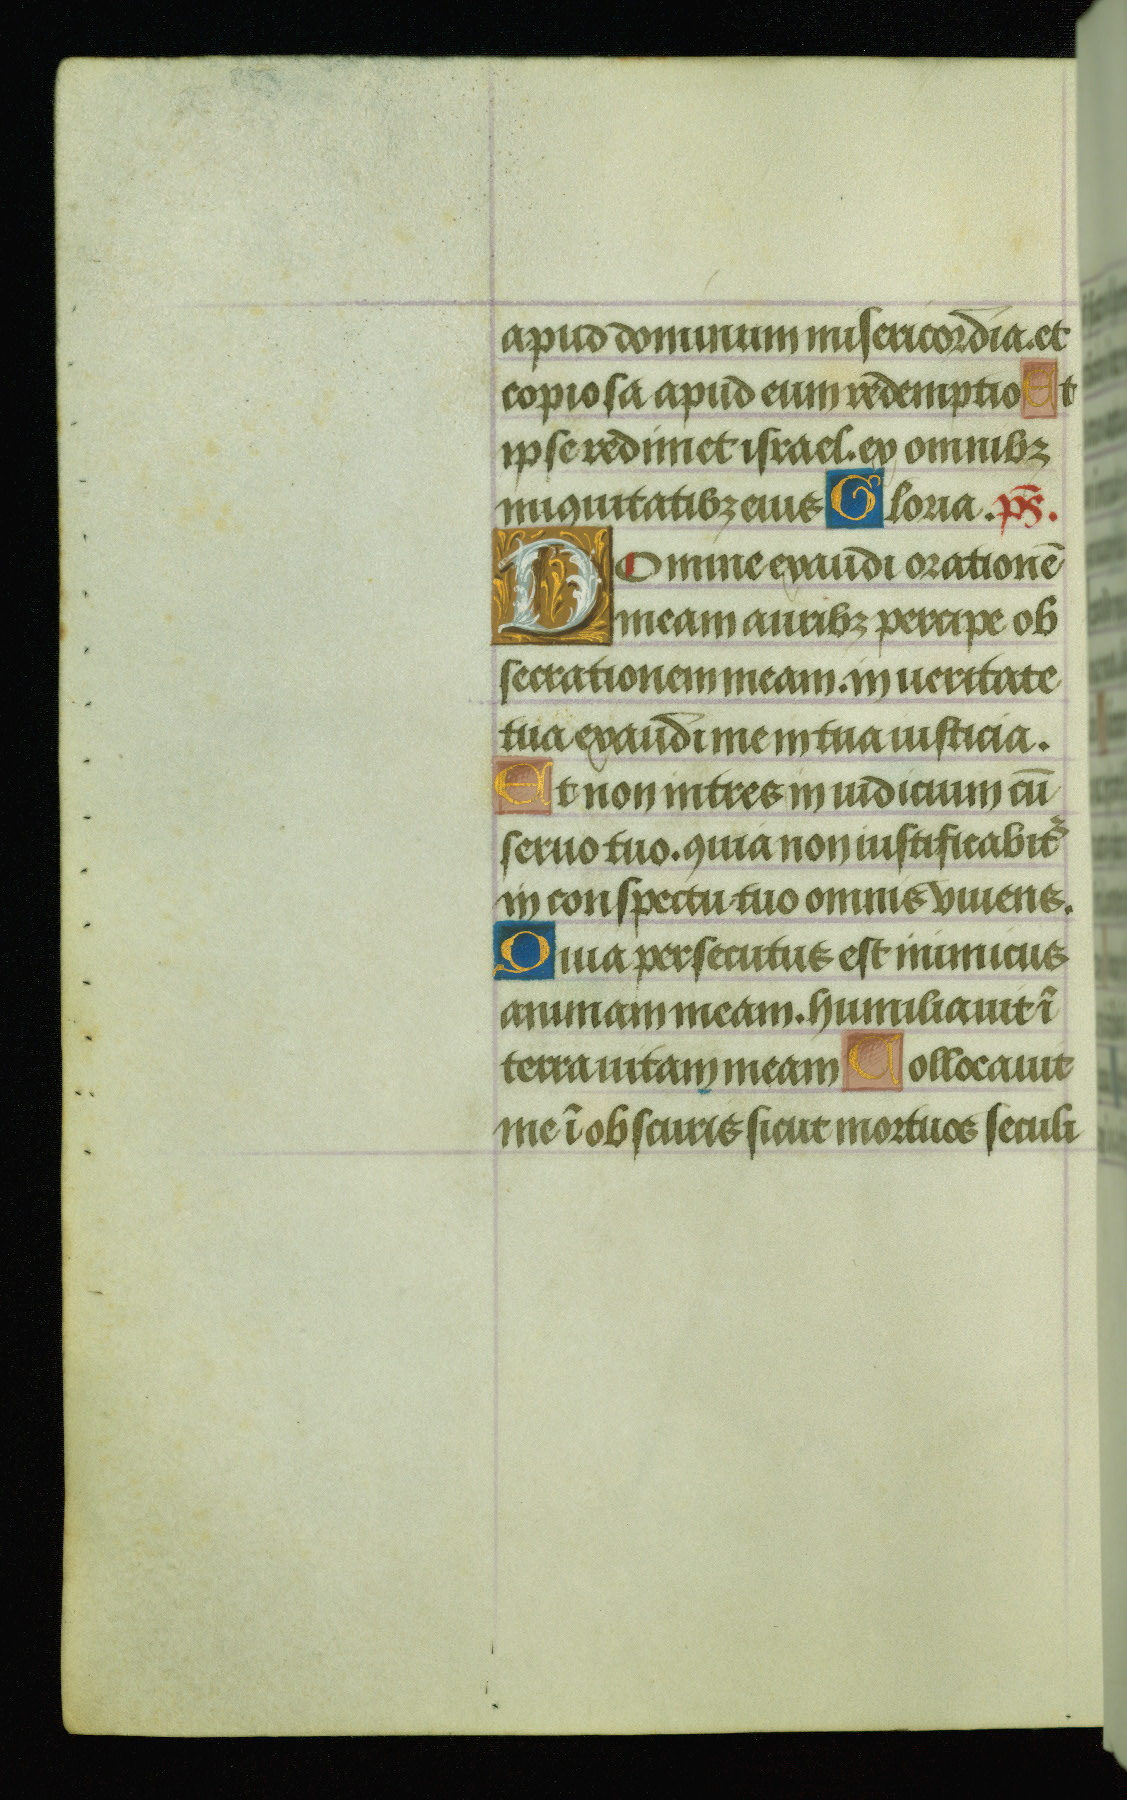 apud dominum misericordia. et
copiosa apud eum redemptio Et
ipse redimet israel. ex omnibꝫ
iniquitatibꝫ eius Gloria . ps̄.
Domine exaudi orationē
meam auribꝫ percipe ob
secrationem meam. in ueritate
tua exaudi me in tua iusticia.
Et non intres in iudicium cū
seruo tuo. quia non iustificabitᷣ
in conspectu tuo omnis viuens.
Quia persecutus est inimicus
animam meam. humiliauit ī
terra uitam meam Collocauit
me ī obscuris sicut mortuos seculi